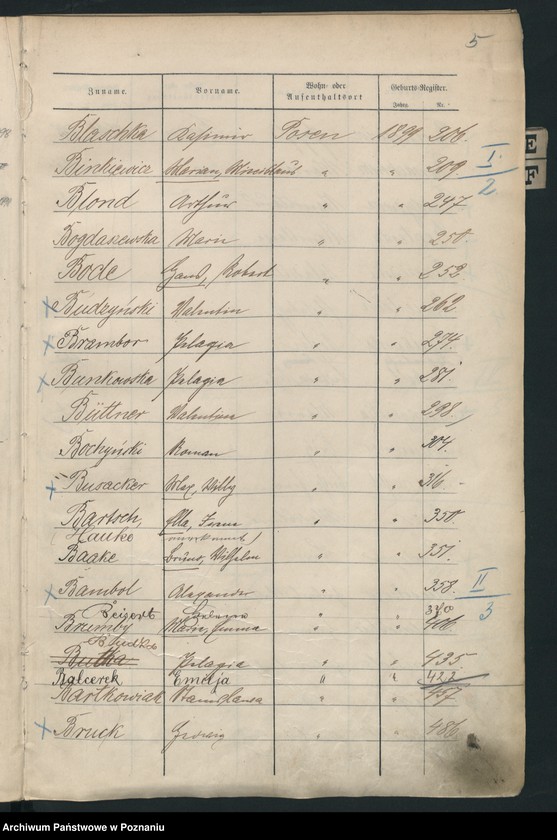 5
Zuname. Vorname. Wohn- oder Aufenthaltsort Geburts-Register.
Jahrg. Nr.
Blaschka Kasimir Posen 1899 206.
Binkiewicz Marian, Miecislaus " " 209. I
2
Blond Arthur " " 247
Bogdaszewska Marie " " 250.
Bode Hans, Robert " " 252
x Budzyński Valentin " " 262
x Brambor Pelagia " " 274.
x Bunkowska Pelagia " " 281.
Büttner Valentin " " 298
Bochyński Roman " " 304.
x Busacker Max, Willy " " 316.
Bartsch, Ella, " " 350.
(Hauke anerkannt)
Baake Bruno, Wilhelm " " 351.
x Bambol Alexander " " 358. II
3
Beigert 370
Brumby Marie, Emma " " 406.
Butka Pelagia " " 435.
Balcerek Emilja " " 422
Bartkowiak Stanislawa " " 457
x Bruck Georg " " 486.
E
F
Archiwum Państwowe w Poznaniu